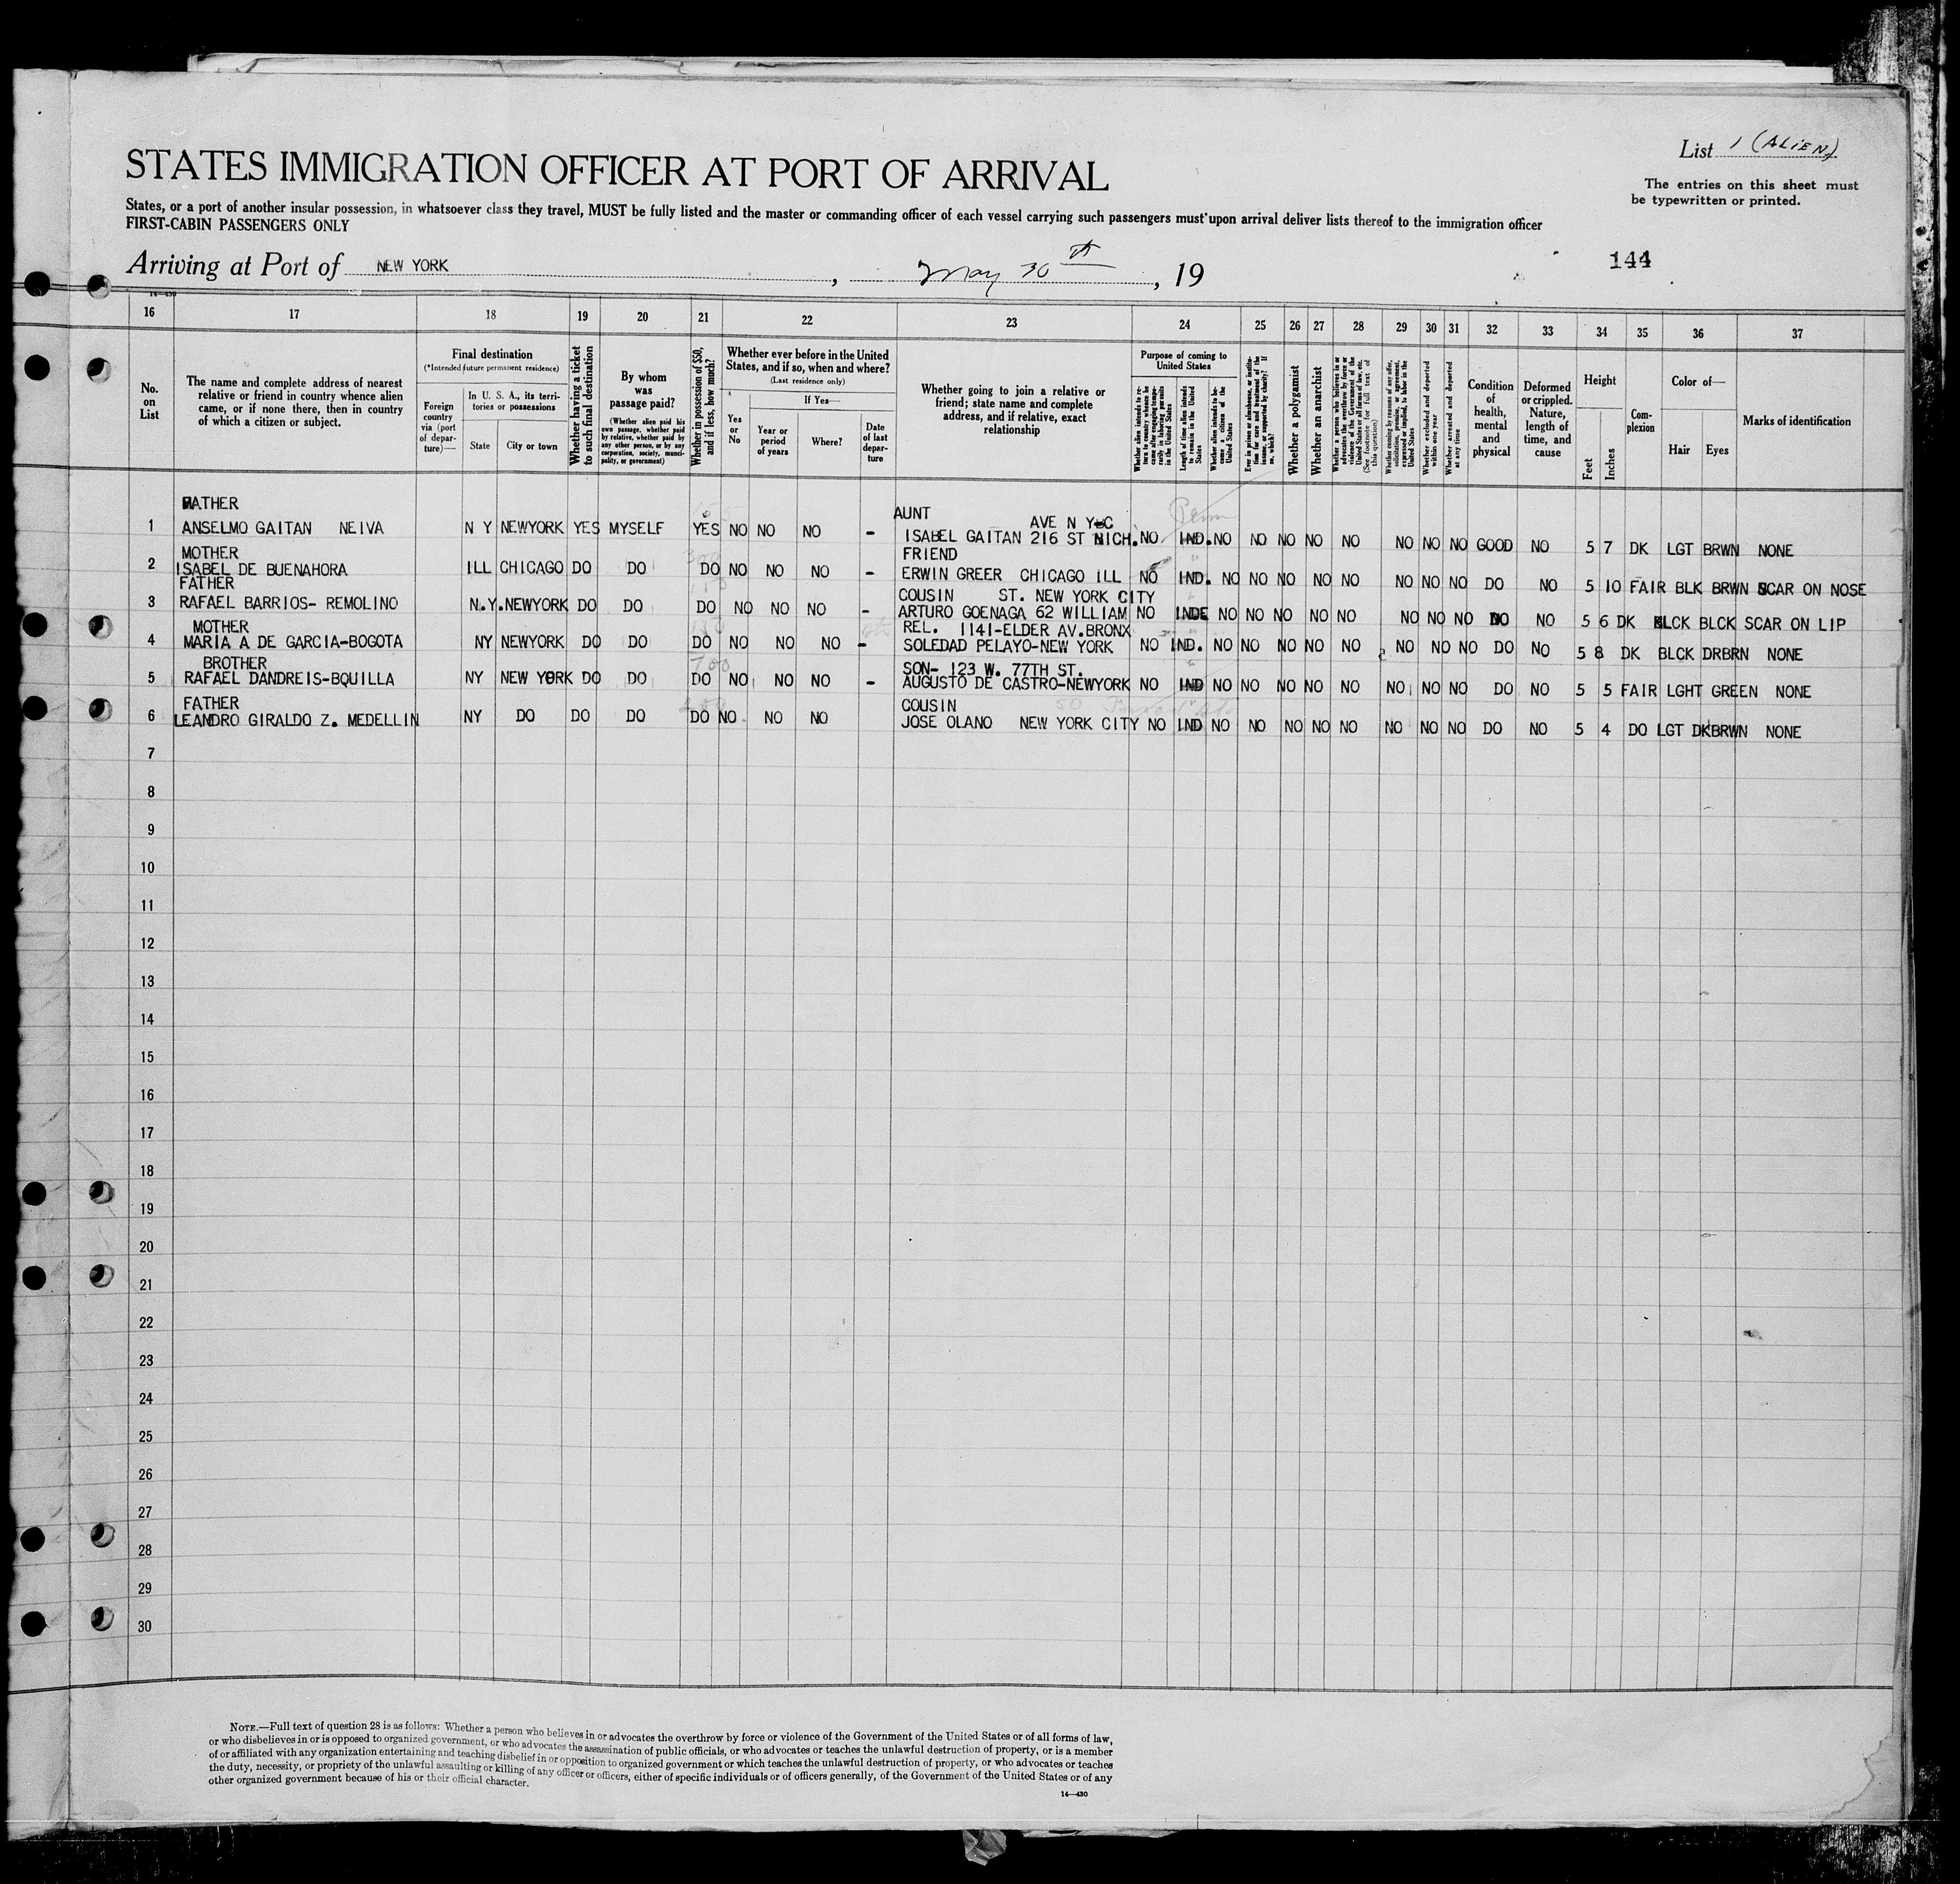 List 1 (ALIEN)
STATES IMMIGRATION OFFICER AT PORT OF ARRIVAL
The entries on this sheet must
be typewritten or printed.
States, or a port of another insular possession, in whatsoever class they travel, MUST be fully listed and the master or commanding officer of each vessel carrying such passengers must upon arrival deliver lists thereof to the immigration officer
FIRST-CABIN PASSENGERS ONLY
Arriving at Port of NEW YORK, May 30th, 19
144
14-430
16 17 18 19 20 21 22 23 24 25 26 27 28 29 30 31 32 33 34 35 36 37
No. on List
The name and complete address of nearest relative or friend in country whence alien came, or if none there, then in country of which a citizen or subject.
Final destination
(*Intended future permanent residence)
Foreign country via (port of departure)—
In U. S. A., its territories or possessions
State
City or town
Whether having a ticket to such final destination
By whom was passage paid?
(Whether alien paid his own passage, whether paid by relative, whether paid by any other person, or by any corporation, society, municipality, or government)
Whether in possession of $50, and if less, how much?
Whether ever before in the United States, and if so, when and where?
(Last residence only)
Yes or No
If Yes—
Year or period of years
Where?
Date of last departure
Whether going to join a relative or friend; state name and complete address, and if relative, exact relationship
Purpose of coming to United States
Whether alien intends to return to country whence he came after engaging temporarily in laboring pursuits in the United States
Length of time alien intends to remain in the United States
Whether alien intends to become a citizen of the United States
Ever in prison or almshouse, or institution for care and treatment of the insane, or supported by charity? If so, which?
Whether a polygamist
Whether an anarchist
Whether a person who believes in or advocates the overthrow by force or violence of the Government of the United States or all forms of law, etc. (See footnote for full text of this question)
Whether coming by reasons of any offer, solicitation, promise, or agreement, expressed or implied, to labor in the United States
Whether excluded and deported within one year
Whether arrested and deported at any time
Condition of health, mental and physical
Deformed or crippled. Nature, length of time, and cause
Height
Feet
Inches
Complexion
Color of—
Hair
Eyes
Marks of identification
FATHER AUNT AVE N Y C
1 ANSELMO GAITAN NEIVA N Y NEWYORK YES MYSELF YES NO NO NO - ISABEL GAITAN 216 ST NICH. NO IND. NO NO NO NO NO NO NO NO GOOD NO 5 7 DK LGT BRWN NONE
MOTHER FRIEND
2 ISABEL DE BUENAHORA ILL CHICAGO DO DO DO NO NO NO - ERWIN GREER CHICAGO ILL NO IND. NO NO NO NO NO NO NO NO DO NO 5 10 FAIR BLK BRWN SCAR ON NOSE
FATHER COUSIN ST. NEW YORK CITY
3 RAFAEL BARRIOS- REMOLINO N.Y. NEWYORK DO DO DO NO NO NO - ARTURO GOENAGA 62 WILLIAM NO INDE NO NO NO NO NO NO NO NO DO NO 5 6 DK BLCK BLCK SCAR ON LIP
MOTHER REL. 1141-ELDER AV.BRONX
4 MARIA A DE GARCIA-BOGOTA NY NEWYORK DO DO DO NO NO NO - SOLEDAD PELAYO-NEW YORK NO IND. NO NO NO NO NO NO NO NO DO NO 5 8 DK BLCK DRBRN NONE
BROTHER 700 SON- 123 W. 77TH ST.
5 RAFAEL DANDREIS-BQUILLA NY NEW YORK DO DO DO NO NO NO - AUGUSTO DE CASTRO-NEWYORK NO IND NO NO NO NO NO NO NO NO DO NO 5 5 FAIR LGHT GREEN NONE
FATHER COUSIN
6 LEANDRO GIRALDO Z. MEDELLIN NY DO DO DO DO NO NO NO JOSE OLANO NEW YORK CITY NO IND NO NO NO NO NO NO NO NO DO NO 5 4 DO LGT DKBRWN NONE
7
8
9
10
11
12
13
14
15
16
17
18
19
20
21
22
23
24
25
26
27
28
29
30
NOTE.—Full text of question 28 is as follows: Whether a person who believes in or advocates the overthrow by force or violence of the Government of the United States or of all forms of law,
or who disbelieves in or is opposed to organized government, or who advocates the assassination of public officials, or who advocates or teaches the unlawful destruction of property, or is a member
of or affiliated with any organization entertaining and teaching disbelief in or opposition to organized government or which teaches the unlawful destruction of property, or who advocates or teaches
the duty, necessity, or propriety of the unlawful assaulting or killing of any officer or officers, either of specific individuals or of officers generally, of the Government of the United States or of any
other organized government because of his or their official character.
14-430